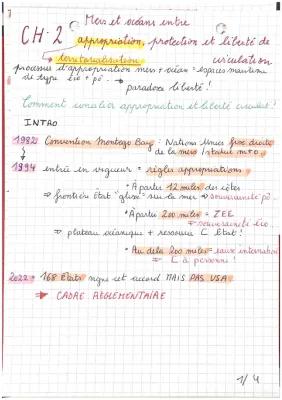 Mers et océans entre
CH.2 appropriation, protection et liberté de
circulation
→ territorialisation
processus d'appropriation mers + océan = espaces maritime
de type éco + po.
→ paradoxe liberté!
Comment concilier appropriation et liberté circulat°!
INTRO
1982 Convention Montego Bay: Nations Unies fixe droits
de la mers / statut
1994 entrée en vigueur = règles appropriations
• A partir 12 miles des côtes
⇒ frontière Etat "glisse" sur la mer ⇒ souveraineté po.
• A partir 200 miles = ZEE
⇒ souveraineté éco
⇒ plateau océanique + ressources État!
• Au delà 200 miles = eaux internation
= à personne!
2022: 168 Etats signe cet accord MAIS PAS USA
→ CADRE REGLEMENTAIRE
1/4